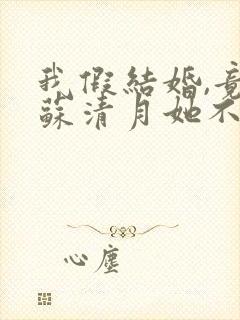 我假結婚,竟
蘇清月她不
心塵